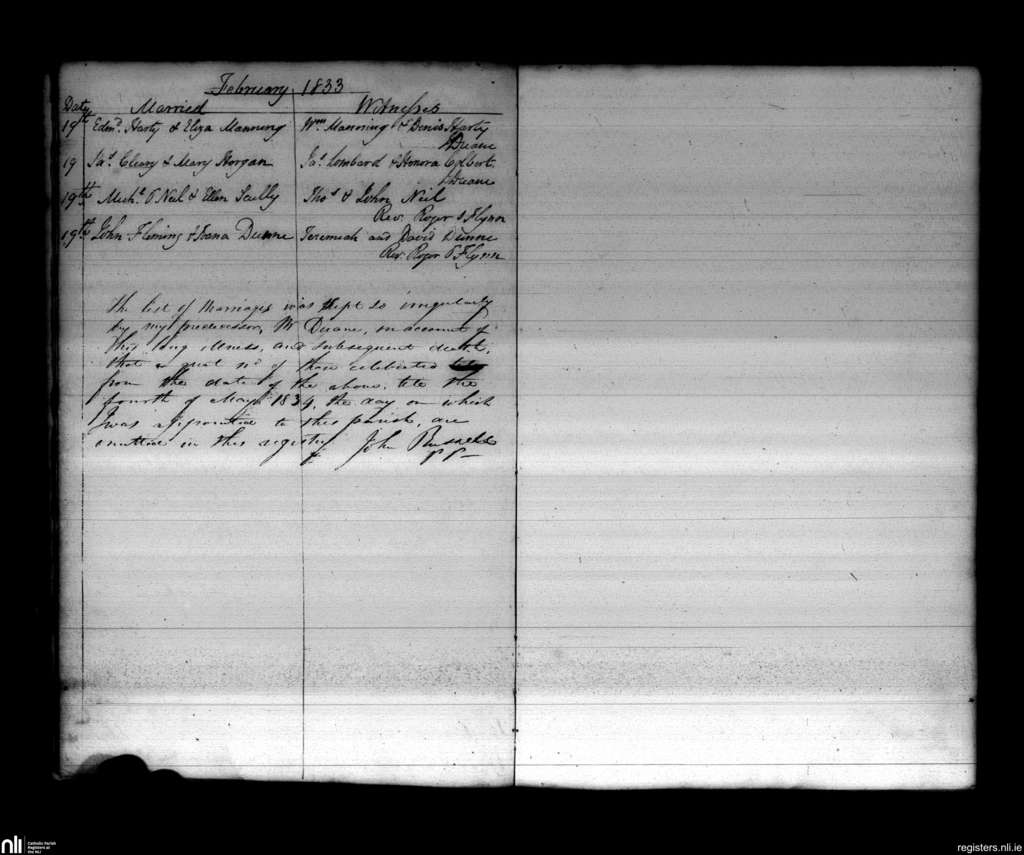 February 1833
Date Married Witnesses
19th Edmd. Harty & Eliza Manning Wm Manning & Denis Harty
Duane
19 Jas. Cleary & Mary Horgan Jas. Lombard & Honora Colbert
Duane
19th Michl. O Neil & Ellen Scully Thos & John Neil
Rev. Roger O Flynn
19th John Fleming & Dunne Jeremiah and David Dunne
Rev. Roger O Flynn
The list of Marriages was kept so irregularly
by my predecessor, Mr Duane, on account of
his long illness, and subsequent death,
that a great no. of those celebrated
from the date of the above, till the
fourth of May 1834, the day on which
I was appointed to this parish, are
omitted in this registry John Russell
P P
nli Catholic Parish
Registers at
the NLI
registers.nli.ie